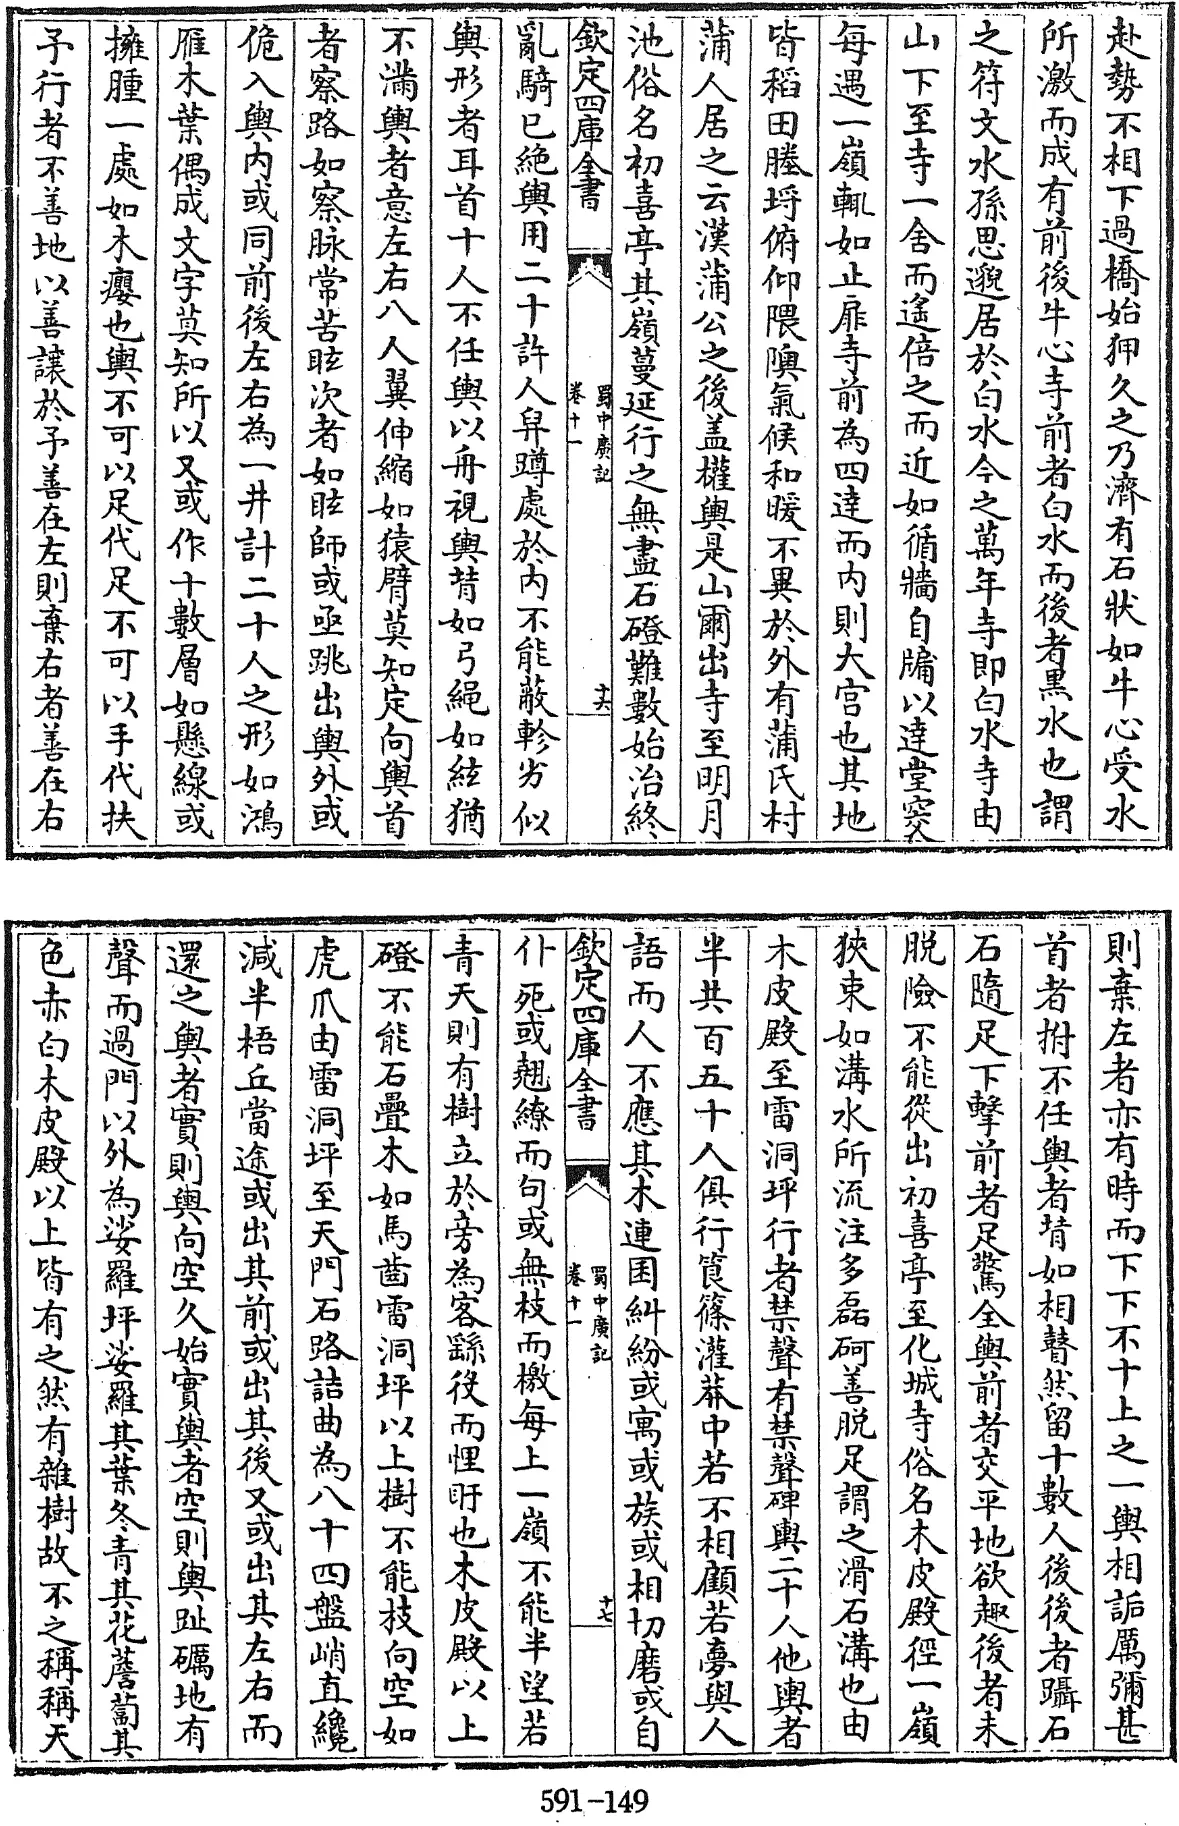 赴勢不相下過橋始狎久之乃濟有石狀如牛心受水
所激而成有前後牛心寺前者白水而後者黑水也謂
之符文水孫思邈居於白水今之萬年寺即白水寺由
山下至寺一舍而遙倍之而近如循牆自牖以達堂穾
每遇一嶺輒如止扉寺前為四達而内則大宫也其地
皆稻田塍埒俯仰隈隩氣候和暖不異於外有蒲氏村
蒲人居之云漢蒲公之後盖權輿是山爾出寺至明月
池俗名初喜亭其嶺蔓延行之無盡石磴難數始治終
欽定四庫全書
蜀中廣記
卷十一
十六
亂騎已絶輿用二十許人舁蹲處於内不能蔽軫劣似
輿形者耳首十人不任輿以舟視輿背如弓繩如絃猶
不滿輿者意左右八人翼伸縮如猿臂莫知定向輿首
者察路如察脉常苦眩次者如眩師或亟跳出輿外或
佹入輿内或同前後左右為一井計二十人之形如鴻
雁木葉偶成文字莫知所以又或作十數層如懸線或
擁腫一處如木癭也輿不可以足代足不可以手代扶
予行者不善地以善讓於予善在左則棄右者善在右
則棄左者亦有時而下下不十上之一輿相詬厲彌甚
首者拊不任輿者背如相瞽然留十數人後後者躡石
石隨足下擊前者足驚全輿前者交平地欲趣後者未
脱險不能從出初喜亭至化城寺俗名木皮殿徑一嶺
狹束如溝水所流注多磊砢善脱足謂之滑石溝也由
木皮殿至雷洞坪行者禁聲有禁聲碑輿二十人他輿者
半共百五十人俱行筤篠灌莽中若不相顧若夢與人
語而人不應其木連困糾紛或寓或族或相切磨或自
欽定四庫全書
蜀中廣記
卷十一
十七
仆死或翹繚而句或無枝而檄每上一嶺不能半望若
青天則有樹立於旁為客繇役而悝盱也木皮殿以上
磴不能石疊木如馬齒雷洞坪以上樹不能枝向空如
虎爪由雷洞坪至天門石路詰曲為八十四盤峭直纔
減半梧丘當途或出其前或出其後又或出其左右而
還之輿者實則輿向空久始實輿者空則輿趾礪地有
聲而過門以外為娑羅坪娑羅其葉冬青其花薝蔔其
色赤白木皮殿以上皆有之然有雜樹故不之稱稱天
591-149